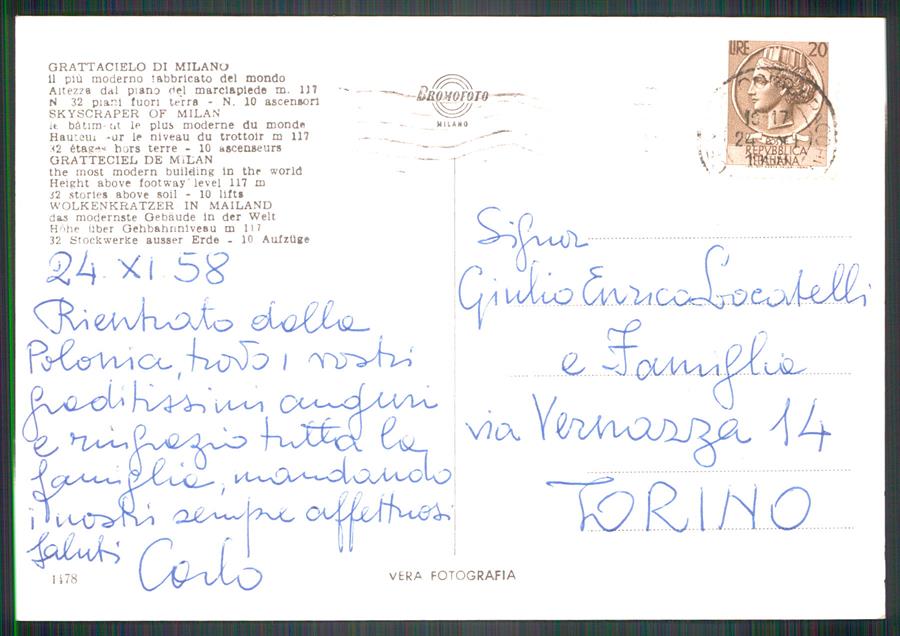 GRATTACIELO DI MILANO
il più moderno fabbricato del mondo
Altezza dal piano del marciapiede m. 117
N 32 piani fuori terra - N. 10 ascensori
SKYSCRAPER OF MILAN
le bâtim-nt le plus moderne du monde
Hauteur -ur le niveau du trottoir m 117
32 étages hors terre - 10 ascenseurs
GRATTECIEL DE MILAN
the most modern building in the world
Height above footway level 117 m
32 stories above soil - 10 lifts
WOLKENKRATZER IN MAILAND
das modernste Gebäude in der Welt
Höhe über Gehbahnniveau m 117
32 Stockwerke ausser Erde - 10 Aufzüge
24. XI 58
Rientrato dalla
Polonia, trovo i vostri
graditissimi auguri
e ringrazio tutta la
famiglia, mandando
i nostri sempre affettuosi
saluti
Carlo
1478
BROMOFOTO
MILANO
VERA FOTOGRAFIA
LIRE 20
REPVBBLICA
ITALIANA
17
24
Signor
Giulio Enrico Locatelli
e Famiglia
via Vernazza 14
TORINO